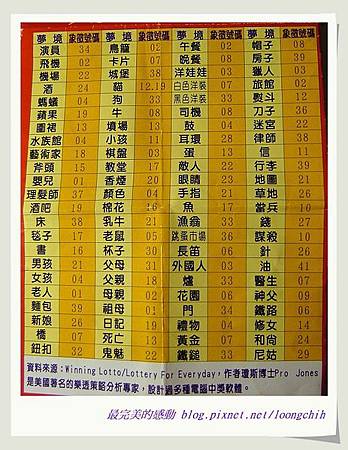 夢境 象徵號碼 夢境 象徵號碼 夢境 象徵號碼 夢境 象徵號碼
演員 34 鳥籠 02 午餐 02 帽子 08
飛機 02 卡片 07 晚餐 08 房子 39
機場 22 城堡 38 洋娃娃 03 獵人 03
酒 24 貓 12.19 白色洋裝 07 旅館 02
螞蟻 04 狗 33 黑色洋裝 33 熨斗 12
蘋果 19 牛 08 司機 08 刀子 36
圍裙 13 墳場 13 鼓 04 迷宮 22
水族館 04 小孩 11 耳環 28 律師 38
藝術家 18 棋盤 03 蛋 13 信 11
斧頭 15 教堂 17 敵人 22 行李 39
嬰兒 01 香煙 20 眼睛 23 地圖 21
理髮師 37 顏色 04 手指 21 草地 26
酒吧 19 棉花 16 魚 17 當兵 10
床 38 乳牛 21 漁翁 33 錢 27
毯子 17 老鼠 05 跳蚤市場 33 謀殺 10
書 16 杯子 30 長笛 06 針 26
男孩 21 父母 31 外國人 03 油 41
女孩 04 父親 18 爐 33 醫生 07
老人 01 母親 02 花園 06 神父 09
麵包 39 祖母 01 門 34 鐵路 06
新娘 26 日記 19 禮物 04 修女 14
橋 07 死亡 13 黃金 07 和尚 24
鈕扣 32 鬼魅 22 鐵鎚 33 尼姑 29
資料來源：Winning Lotto/Lottery For Everyday，作者瓊斯博士Pro Jones
是美國著名的樂透策略分析專家，設計過多種電腦中獎軟體。
最完美的感動 blog.pixnet.net/loongchih